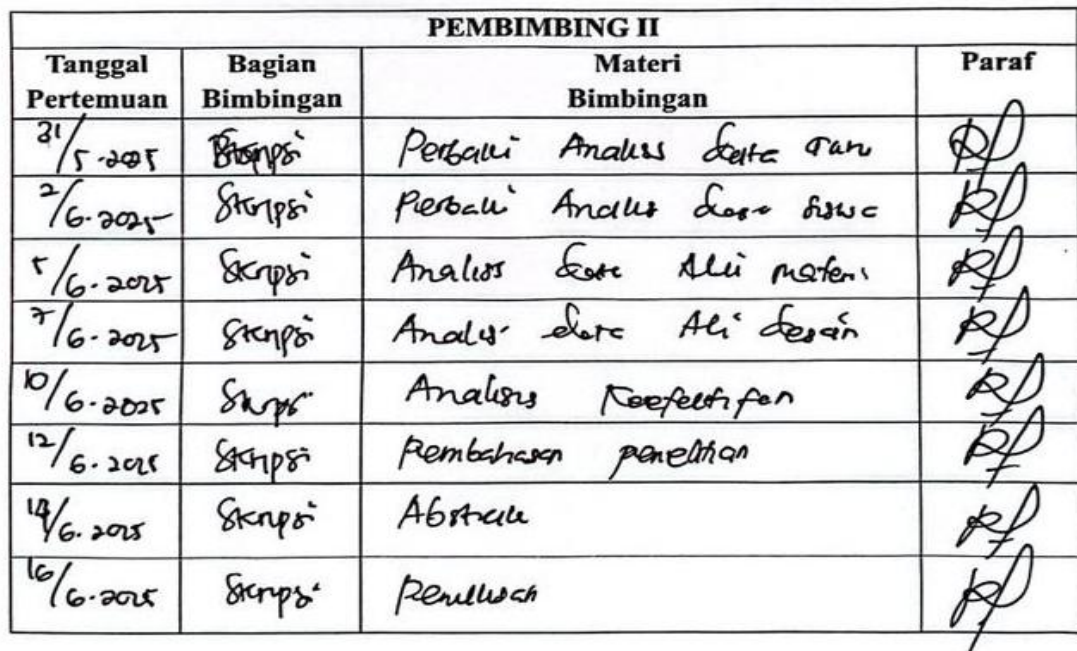 PEMBIMBING II
Tanggal Pertemuan Bagian Bimbingan Materi Bimbingan Paraf
31/5-2025 Skripsi Perbaiki Analisis data
2/6-2025 Skripsi Perbaiki Analisis data siswa
5/6-2025 Skripsi Analisis data Ahli materi
7/6-2025 Skripsi Analisis data Ahli desain
10/6-2025 Skripsi Analisis Keefektifan
12/6-2025 Skripsi Pembahasan penelitian
14/6-2025 Skripsi Abstrak
16/6-2025 Skripsi Penulisan